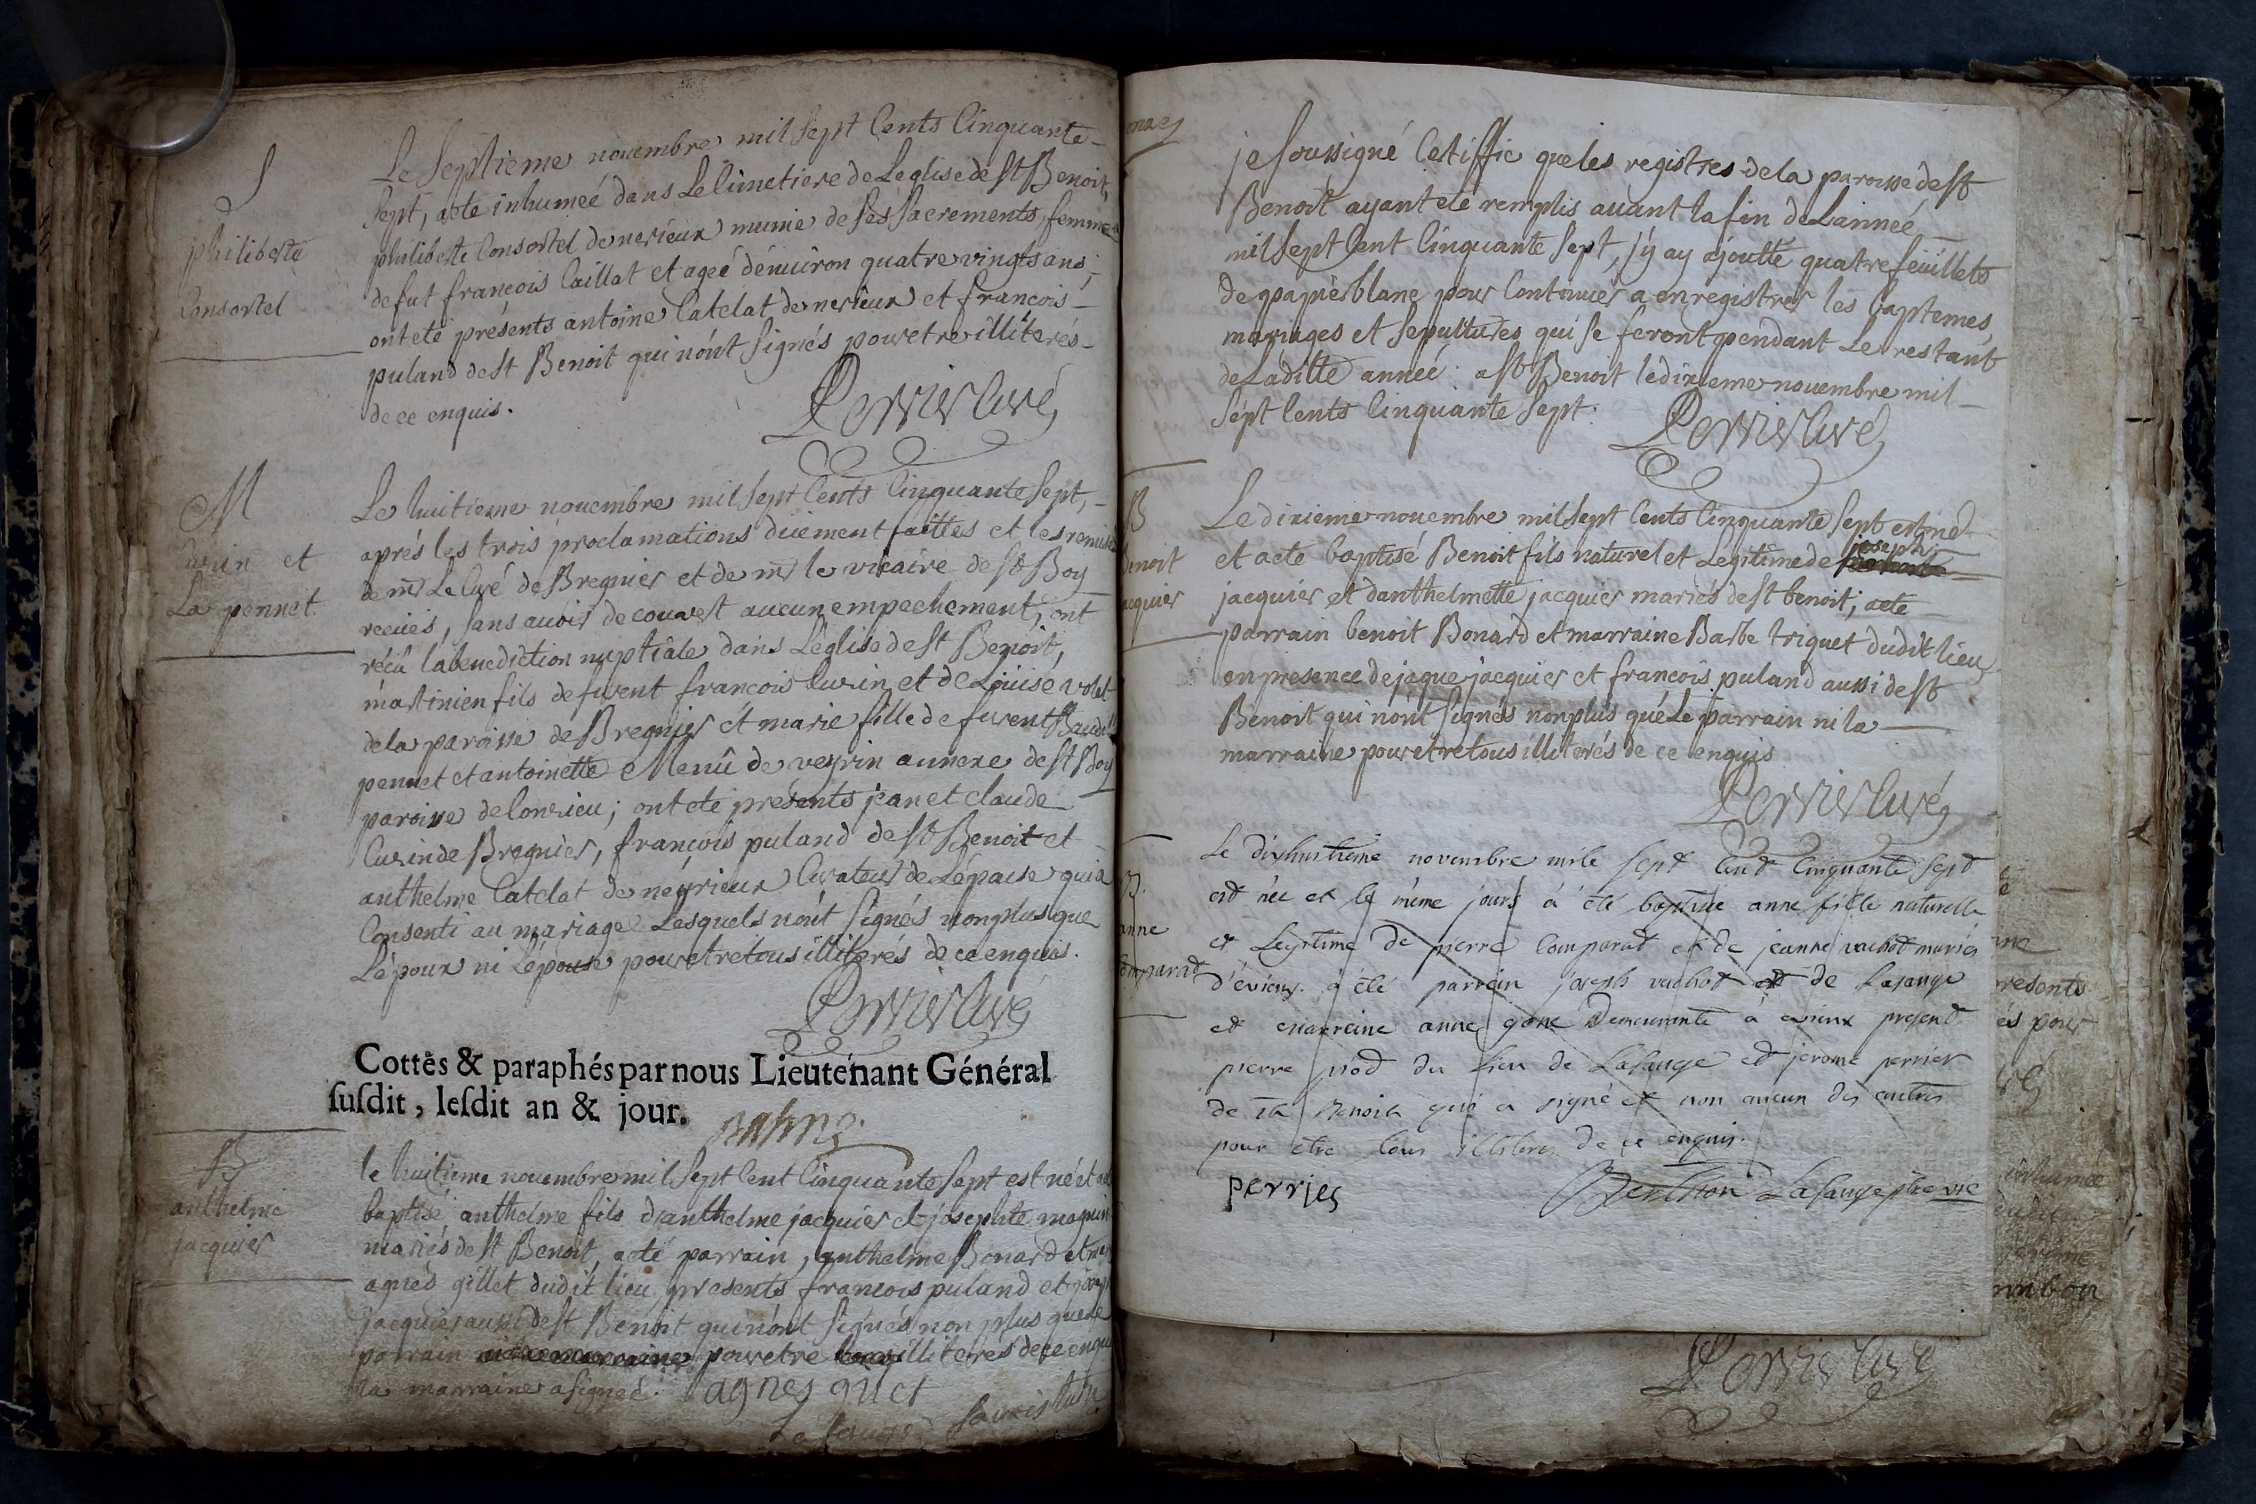 S
philiberte
Consortel
Le Septieme nouembre mil sept Cents Cinquante-
sept, aeté inhumeé dans Le Cimetiere de Leglise de st Benoit,
philiberte Consortel de nerieux munie de ses sacrements, femme
defut francois Caillat et ageé d'enuiron quatre vingts ans;
ont eté présents antoine Catelat de nerieux et francois-
puland de st Benoit qui n'o'nt signés pour etre illiterés-
de ce enquis.
Perrier Curé
M
Curin et
La pennet
Le huitieme nouembre mil sept Cents Cinquante sept,-
aprés les trois proclamations duement faittes et les remises
de mr Le Curé de Bregnier et de mr le vicaire de st Boy
receües, sans auoir decouuert aucun empechement, ont
réçû la benediction nuptiale dans Léglise de st Benoit,
martinien fils defuuent francois Curin et de Loüise volet
de la paroisse de Bregnier et marie fille defuuent
pennet et antoinette Menû de veyrin annexe de st Boy
paroisse de Conrieu; ont eté presents jean et claude
Curin de Bregnier, francois puland de st Benoit et
anthelme Catelat de neyrieux Curateur de Lépouse qui a
Consenti au mariage Lesquels n'o'nt signés nonplus que
Lépoux ni Lépouse pour etre tous illiterés de ce enquis.
Perrier Curé
Cottés & paraphés par nous Lieutenant Général
susdit, lesdit an & jour.
B
anthelme
jacquier
le huitieme nouembre mil sept Cent Cinquante sept est né et
baptisé anthelme fils d'anthelme jacquier et josephte magnin
mariés de st Benoit, aeté parrain, anthelme Bonard et
agnés gillet dudit lieu presents francois puland et
jacquier aussi de st Benoit qui n'o'nt signés non plus que le
parrain pour etre illiterés de ce enquis
La marraine a signeé. agnes
je soussigné Certiffie que les registres de la paroisse de st
Benoit ayant eté remplis auant la fin de L'anneé
mil sept Cent Cinquante sept, j'y ay ajoutté quatre feüillets
de papier blanc pour Continuer a enregistrer les baptemes
mariages et sepultures qui se feront pendant Le restant
de Laditte anneé. a st Benoit le dixieme nouembre mil-
sept Cents Cinquante sept.
Perrier Curé
B
Benoit
jacquier
Le dixieme nouembre mil sept Cents Cinquante sept est né
et aeté baptisé Benoit fils naturel et Legitime de joseph
jacquier et d'anthelmette jacquier mariés de st benoit; aeté
parrain benoit Bonard et marraine Barbe triquet dudit lieu
en presence de jaque jacquier et francois puland aussi de st
Benoit qui n'o'nt signés nonplus que Le parrain ni la
marraine pour etre tous illiterés de ce enquis
Perrier Curé
B.
anne
Comparat
Le dixhuitieme novembre mile sept Cent Cinquante sept
est née et le même jours à été baptisée anne fille naturelle
et Legitime de pierre Comparat et de jeanne vuchot mariés
d'évieux. à été parrein joseph vuchot de Lasauge
et marreine anne gone Demeurante à évieux present
pierre piod du Lieu de Lasauge et jerome perrier
de st Benoit qui a signé et non aucun des autres
pour etre tous illiteres de ce enquis.
perrier
Berthion Lasauge ptre vic
resents
és pour
inhumée
jérôme
Perrier Curé